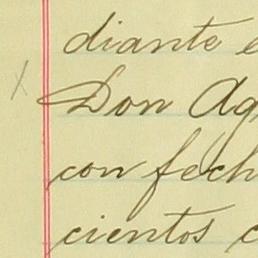 diante e
Don Ag
con fech
cientos c